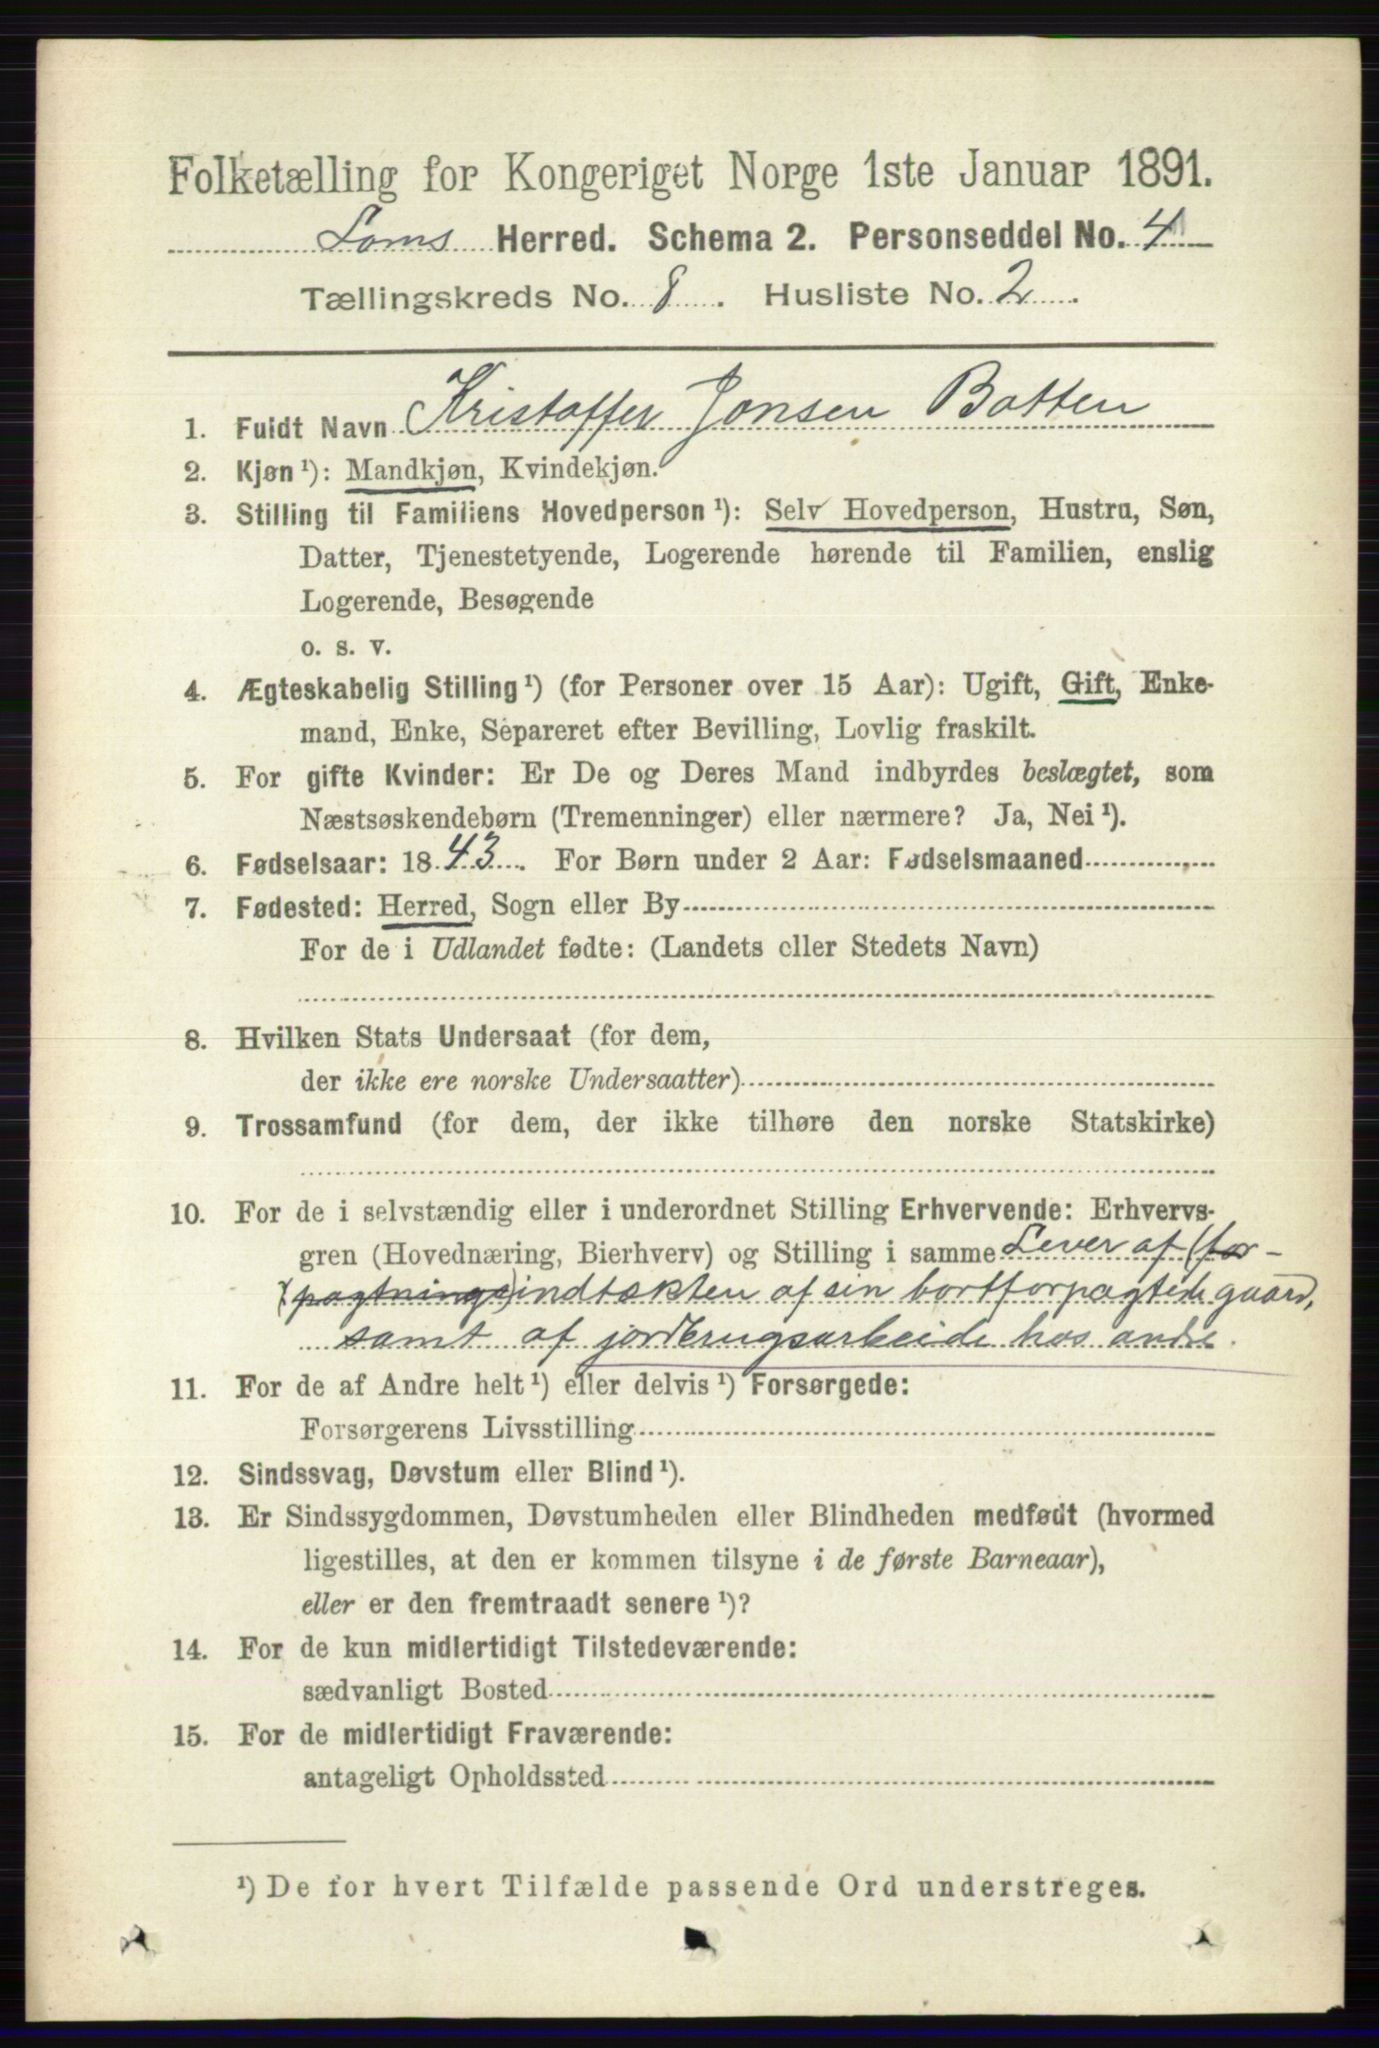 Folketælling for Kongeriget Norge 1ste Januar 1891.
Loms Herred. Schema 2. Personseddel No. 4
Tællingskreds No. 8. Husliste No. 2.
1. Fuldt Navn Kristoffer Jonsen Botten
2. Kjøn ¹): Mandkjøn, Kvindekjøn.
3. Stilling til Familiens Hovedperson ¹): Selv Hovedperson, Hustru, Søn,
Datter, Tjenestetyende, Logerende hørende til Familien, enslig
Logerende, Besøgende
o. s. v.
4. Ægteskabelig Stilling ¹) (for Personer over 15 Aar): Ugift, Gift, Enke-
mand, Enke, Separeret efter Bevilling, Lovlig fraskilt.
5. For gifte Kvinder: Er De og Deres Mand indbyrdes beslægtet, som
Næstsøskendebørn (Tremenninger) eller nærmere? Ja, Nei ¹).
6. Fødselsaar: 1843. For Børn under 2 Aar: Fødselsmaaned
7. Fødested: Herred, Sogn eller By
For de i Udlandet fødte: (Landets eller Stedets Navn)
8. Hvilken Stats Undersaat (for dem,
der ikke ere norske Undersaatter)
9. Trossamfund (for dem, der ikke tilhøre den norske Statskirke)
10. For de i selvstændig eller i underordnet Stilling Erhvervende: Erhvervs-
gren (Hovednæring, Bierhverv) og Stilling i samme Lever af (for-
pagtnings) indtækten af sin bortforpagtede gaard,
samt af jordbrugsarbeide hos andre.
11. For de af Andre helt ¹) eller delvis ¹) Forsørgede:
Forsørgerens Livsstilling
12. Sindssvag, Døvstum eller Blind ¹).
13. Er Sindssygdommen, Døvstumheden eller Blindheden medfødt (hvormed
ligestilles, at den er kommen tilsyne i de første Barneaar),
eller er den fremtraadt senere ¹)?
14. For de kun midlertidigt Tilstedeværende:
sædvanligt Bosted
15. For de midlertidigt Fraværende:
antageligt Opholdssted
¹) De for hvert Tilfælde passende Ord understreges.